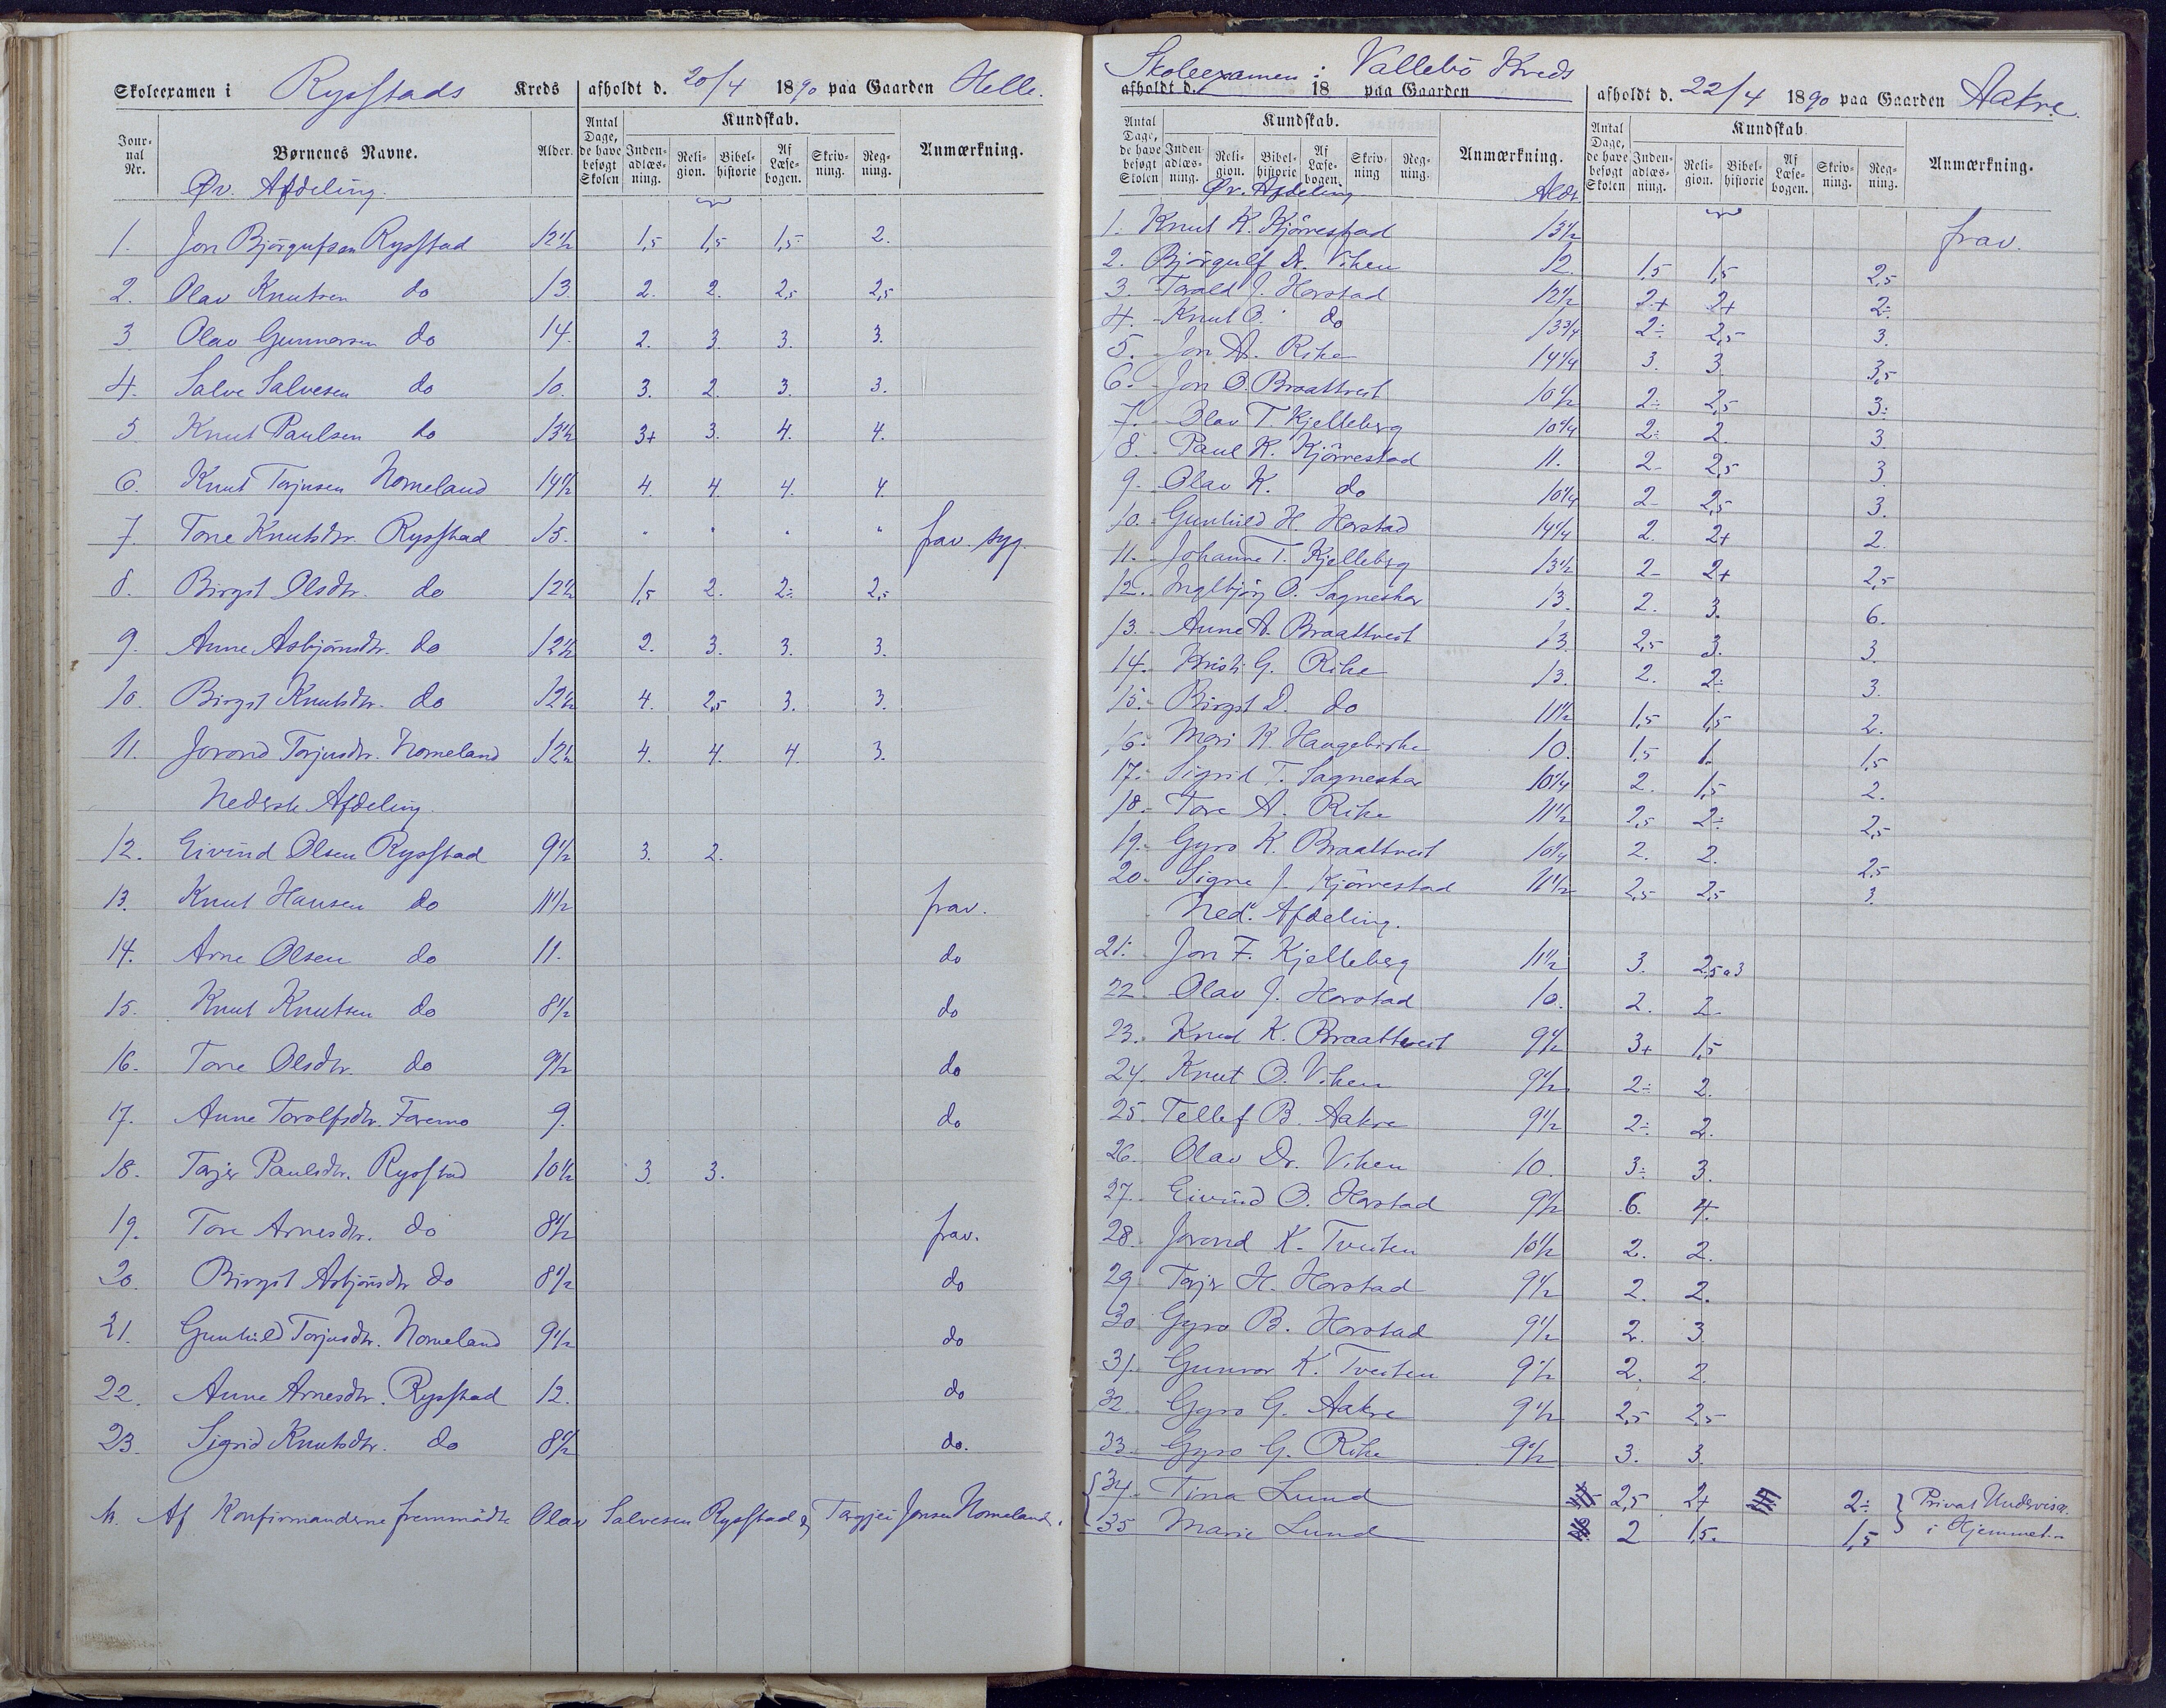 Skoleexamen i Rysstads Kreds afholdt d. 20/4 1890 paa Gaarden Helle.
Jour-nal Nr. Børnenes Navne. Alder. Antal Dage, de have besøgt Skolen Kundskab. Inden-adlæs-ning. Reli-gion. Bibel-historie Af Læse-bogen. Skriv-ning. Reg-ning. Anmærkning.
Øv. Afdeling.
1. Jon Bjørgufsen Rysstad 12½ 1,5 1,5 1,5 2.
2. Olav Knutsen do 13. 2. 2. 2,5 2,5
3 Olav Gunnarsen do 14. 2. 3. 3. 3.
4. Salve Salvesen do 10. 3. 2. 3. 3.
5 Knut Paulsen do 13½ 3+ 3. 4. 4.
6. Knut Torjusen Nomeland 14½ 4. 4. 4. 4.
7. Tone Knutsdtr. Rysstad 15. " " " " frav. syg.
8. Birgit Olsdtr. do 12½ 1,5 2. 2÷ 2,5
9. Anne Asbjörnsdtr. do 12½ 2. 3. 3. 3.
10. Birgit Knutsdtr. do 12½ 4. 2,5 3. 3.
11. Jorond Torjusdtr. Nomeland 12½ 4. 4. 4. 3.
Nederste Afdeling.
12. Eivind Olsen Rysstad 9½ 3. 2.
13. Knut Hansen do 11½ frav.
14. Arne Olsen do 11. do
15. Knut Knutsen do 8½ do
16. Tone Olsdtr. do 9½ do
17. Anne Torolfsdtr. Faremo 9. do
18. Torjer Paulsdtr. Rysstad 10½ 3. 3.
19. Tore Arnesdtr. do 8½ frav.
20. Birgit Asbjörnsdtr do 8½ do
21. Gunhild Torjusdtr. Nomeland 9½ do
22. Anne Arnesdtr. Rysstad 12. do
23. Sigrid Knutsdtr. do 8½ do.
Af Konfirmanderne fremmödte Olav Salvesen Rysstad & Torgjei Jonsen Nomeland.
Skoleexamen i Vallebö Kreds
afholdt d. 18 paa Gaarden afholdt d. 22/4 1890 paa Gaarden Aakre.
Antal Dage, de have besøgt Skolen Kundskab. Inden-adlæs-ning. Reli-gion. Bibel-historie Af Læse-bogen. Skriv-ning Reg-ning. Anmærkning. Antal Dage, de have besøgt Skolen Kundskab Inden-adlæs-ning. Reli-gion. Bibel-historie Af Læse-bogen. Skriv-ning. Reg-ning. Anmærkning.
Øv. Afdeling Alder
1. Knut K. Kjörrestad 13½ frav.
2. Björgulf Dr. Viken 12. 1,5 1,5 2,5
3. Torald J. Horstad 12½ 2+ 2+ 2÷
4. Knut O. do 13¾ 2÷ 2,5 3.
5. Jon A. Rike 14¼ 3. 3. 3,5
6. Jon O. Braattveit 10½ 2÷ 2,5 3÷
7. Olav T. Kjelleberg 10¼ 2÷ 2. 3.
8. Paul K. Kjörrestad 11. 2- 2,5 3
9. Olav K. do 10¼ 2- 2,5 3.
10. Gunhild H. Horstad 14¼ 2. 2+ 2.
11. Johanne T. Kjelleberg 13½ 2- 2+ 2,5
12. Ingebjörg O. Sagneskar 13. 2. 3. 6.
13. Anne A. Braattveit 13. 2,5 3. 3.
14. Kristi G. Rike 13. 2. 2÷ 3.
15. Birgit D. do 11½ 1,5 1,5 2.
16. Mari K. Haugebirke 10. 1,5 1. 1,5
17. Sigrid T. Sagneskar 10¼ 2. 1,5 2.
18. Tore A. Rike 11½ 2,5 2÷ 2,5
19. Gyro K. Braattveit 10¼ 2. 2. 2,5
20. Signe J. Kjörrestad 11½ 2,5 2,5 3.
Ned. Afdeling.
21. Jon T. Kjelleberg 11½ 3. 2,5 a 3
22. Olav J. Horstad 10. 2. 2-
23. Knud K. Braattveit 9½ 3+ 1,5
24. Knut O. Viken 9½ 2÷ 2.
25 Tellef B. Aakre 9½ 2÷ 2.
26. Olav Dr. Viken 10. 3÷ 3.
27. Eivind O. Horstad 9½ 6. 4.
28. Jorond K. Tveiten 10½ 2. 2.
29. Torjer H. Horstad 9½ 2. 2.
30 Gyro B. Horstad 9½ 2. 3.
31. Gunvor K. Tveiten 9½ 2. 2.
32. Gyro G. Aakre 9½ 2,5 2,5
33. Gyro G. Rike 9½ 3. 3.
34. Tina Lund 2,5 2+ 2÷ Privat Undervisn.
35 Marie Lund 2 1,5. 1,5 i Hjemmet.